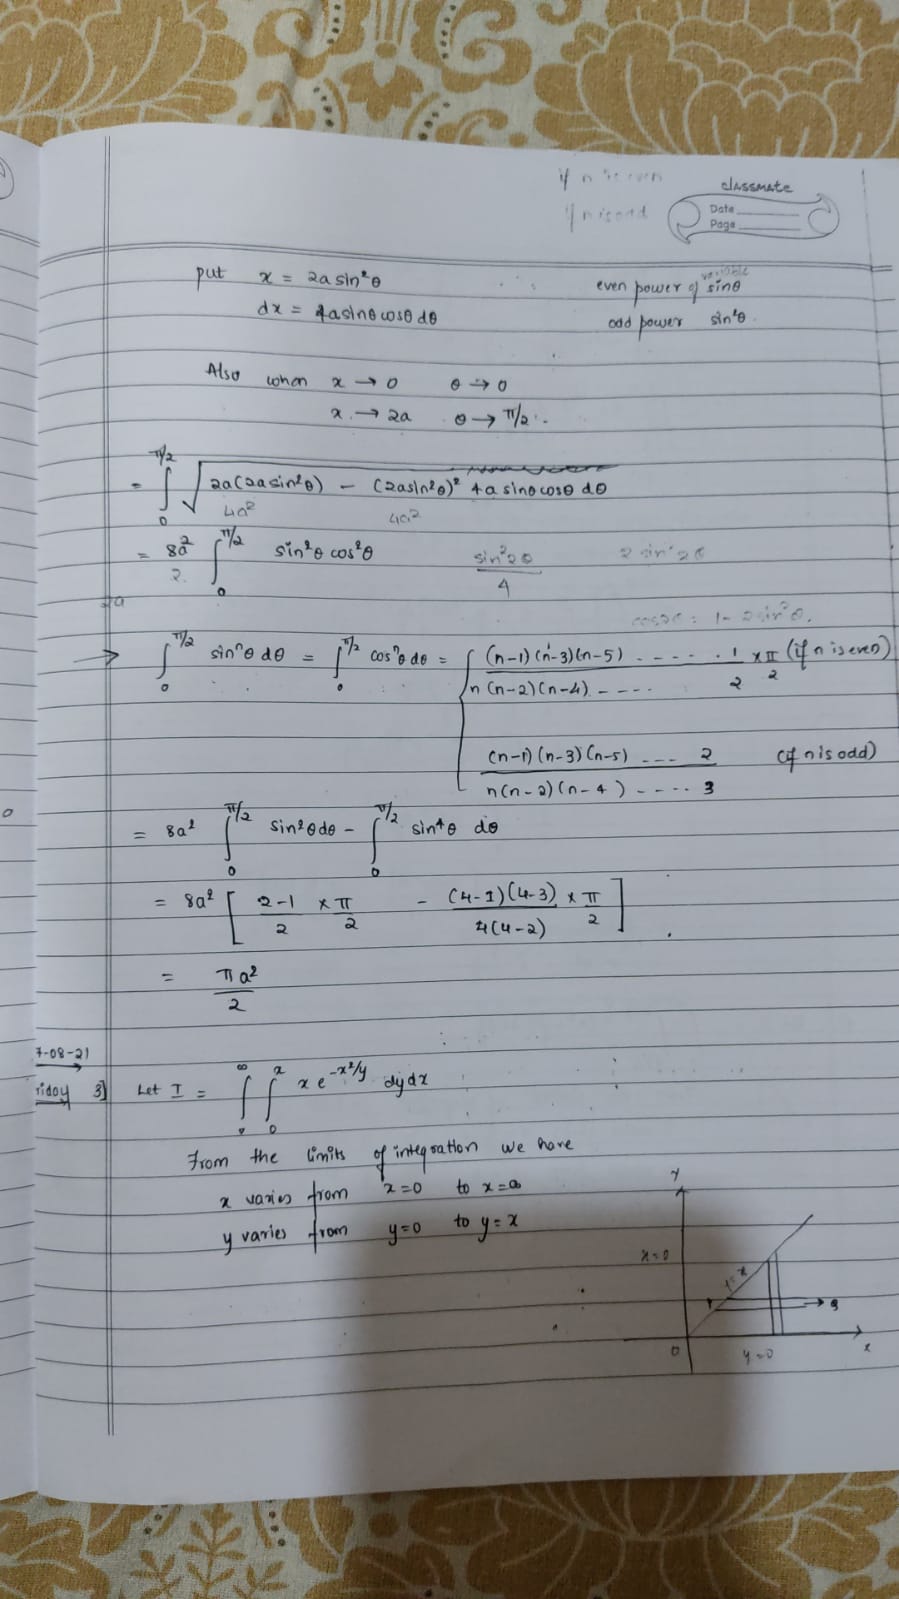 if n is even
if n is odd
classmate
Date
Page
put x = 2a sin²θ
even power of sinθ
variable
dx = 4a sinθ cosθ dθ
odd power sin²θ
Also when x → 0 θ → 0
x → 2a θ → π/2
= ∫₀^{π/2} √ 2a(2a sin²θ) − (2a sin²θ)² 4a sinθ cosθ dθ
4a² 4a²
= 8a² ∫₀^{π/2} sin²θ cos²θ sin²2θ/4 2 sin²2θ
2
2a
cos2θ = 1 − 2sin²θ.
→ ∫₀^{π/2} sinⁿθ dθ = ∫₀^{π/2} cosⁿθ dθ = { (n-1)(n-3)(n-5) ----- 1 / n(n-2)(n-4) ----- 2 × π/2 (if n is even)
(n-1)(n-3)(n-5) ---- 2 / n(n-2)(n-4) ----- 3 (if n is odd)
= 8a² ∫₀^{π/2} sin²θ dθ − ∫₀^{π/2} sin⁴θ dθ
= 8a² [ 2-1/2 × π/2 − (4-1)(4-3)/4(4-2) × π/2 ]
= πa²/2
7-08-21
riday 3] Let I = ∫₀^∞ ∫₀^x x e^{-x²/y} dy dx
From the limits of integration we have
x varies from x=0 to x=∞
y varies from y=0 to y=x
y
x=0
y=x
P Q
0 y=0 x